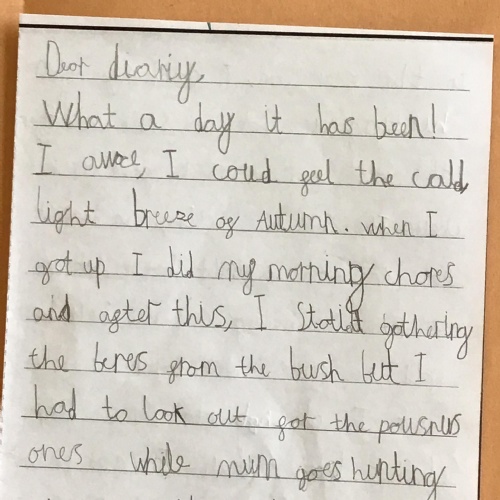 Dear diariy,
What a day it has been!
I awce, I coud feel the cald,
light breeze of Autumn. when I
got up I did my morning chores
and after this, I gothering
the beres from the bush but I
had to look out fot the pousnus
ones while mum goes hunting